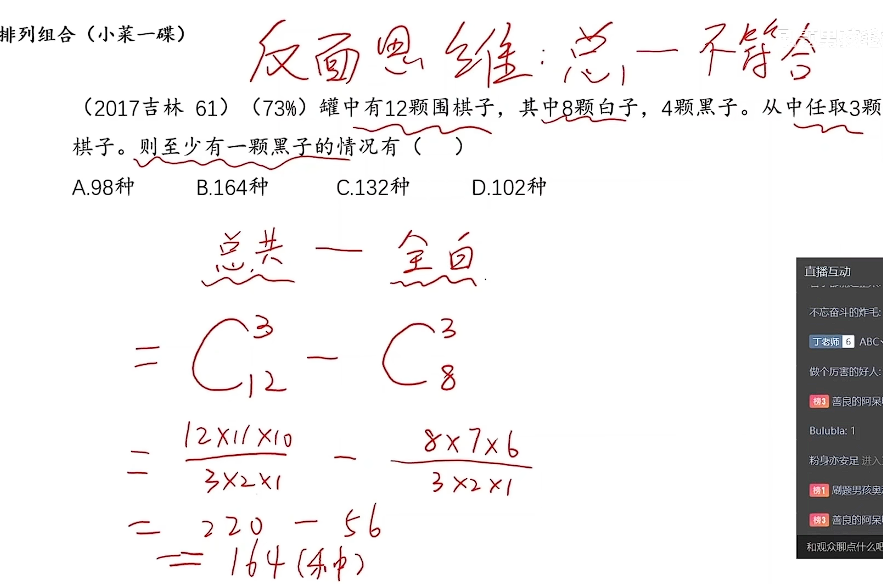 排列组合（小菜一碟）
反面思维：总 — 不符合
（2017吉林 61）（73%）罐中有12颗围棋子，其中8颗白子，4颗黑子。从中任取3颗
棋子。则至少有一颗黑子的情况有（ ）
A.98种 B.164种 C.132种 D.102种
总共 — 全白
= C³₁₂ − C³₈
= 12×11×10 / 3×2×1 − 8×7×6 / 3×2×1
= 220 − 56
= 164（种）
直播互动
不忘奋斗的炸毛:
丁老师 6 ABC
做个厉害的好人:
榜3 善良的阿呆
Bulubla: 1
粉身亦安足 进入
榜1 刷题男孩奥
榜3 善良的阿呆
和观众聊点什么吧